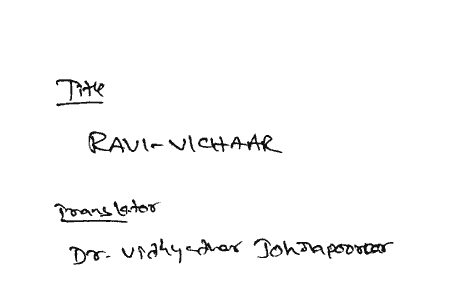 Title
RAVI-VICHAAR
Translator
Dr. Vidhyadhar Johrapoorkar